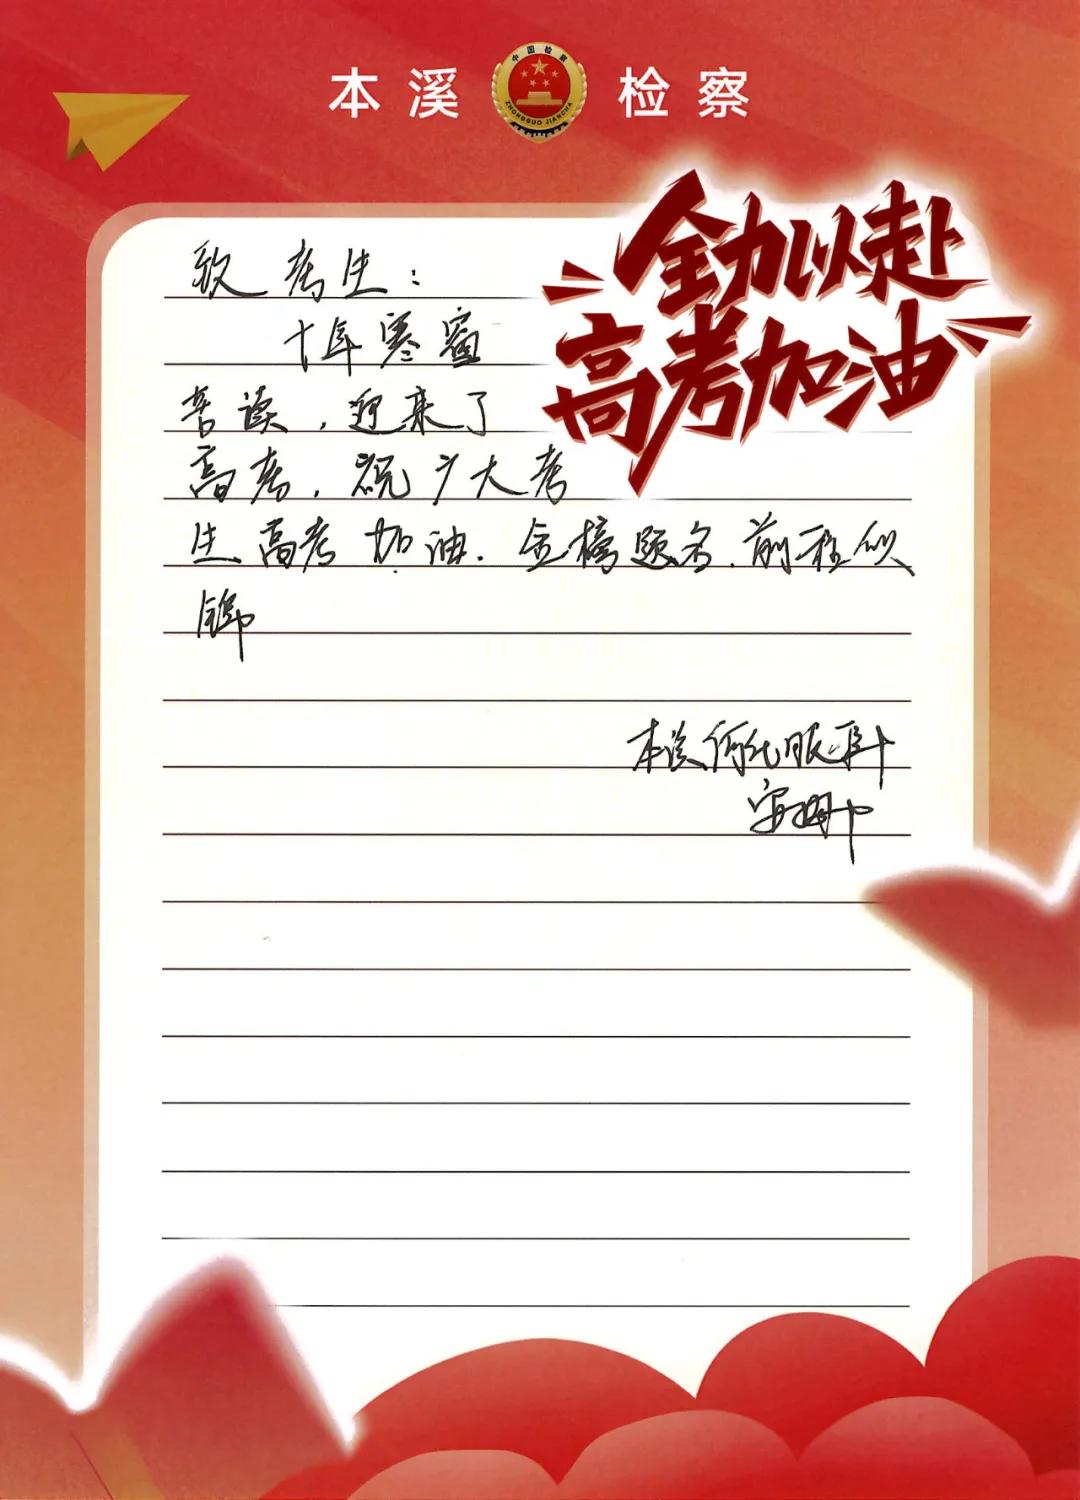 本溪 检察
中国检察
ZHONGGUO JIANCHA
全力以赴
高考加油
致考生：
十年寒窗
苦读，迎来了
高考，祝广大考
生高考加油.金榜题名.前程似
锦